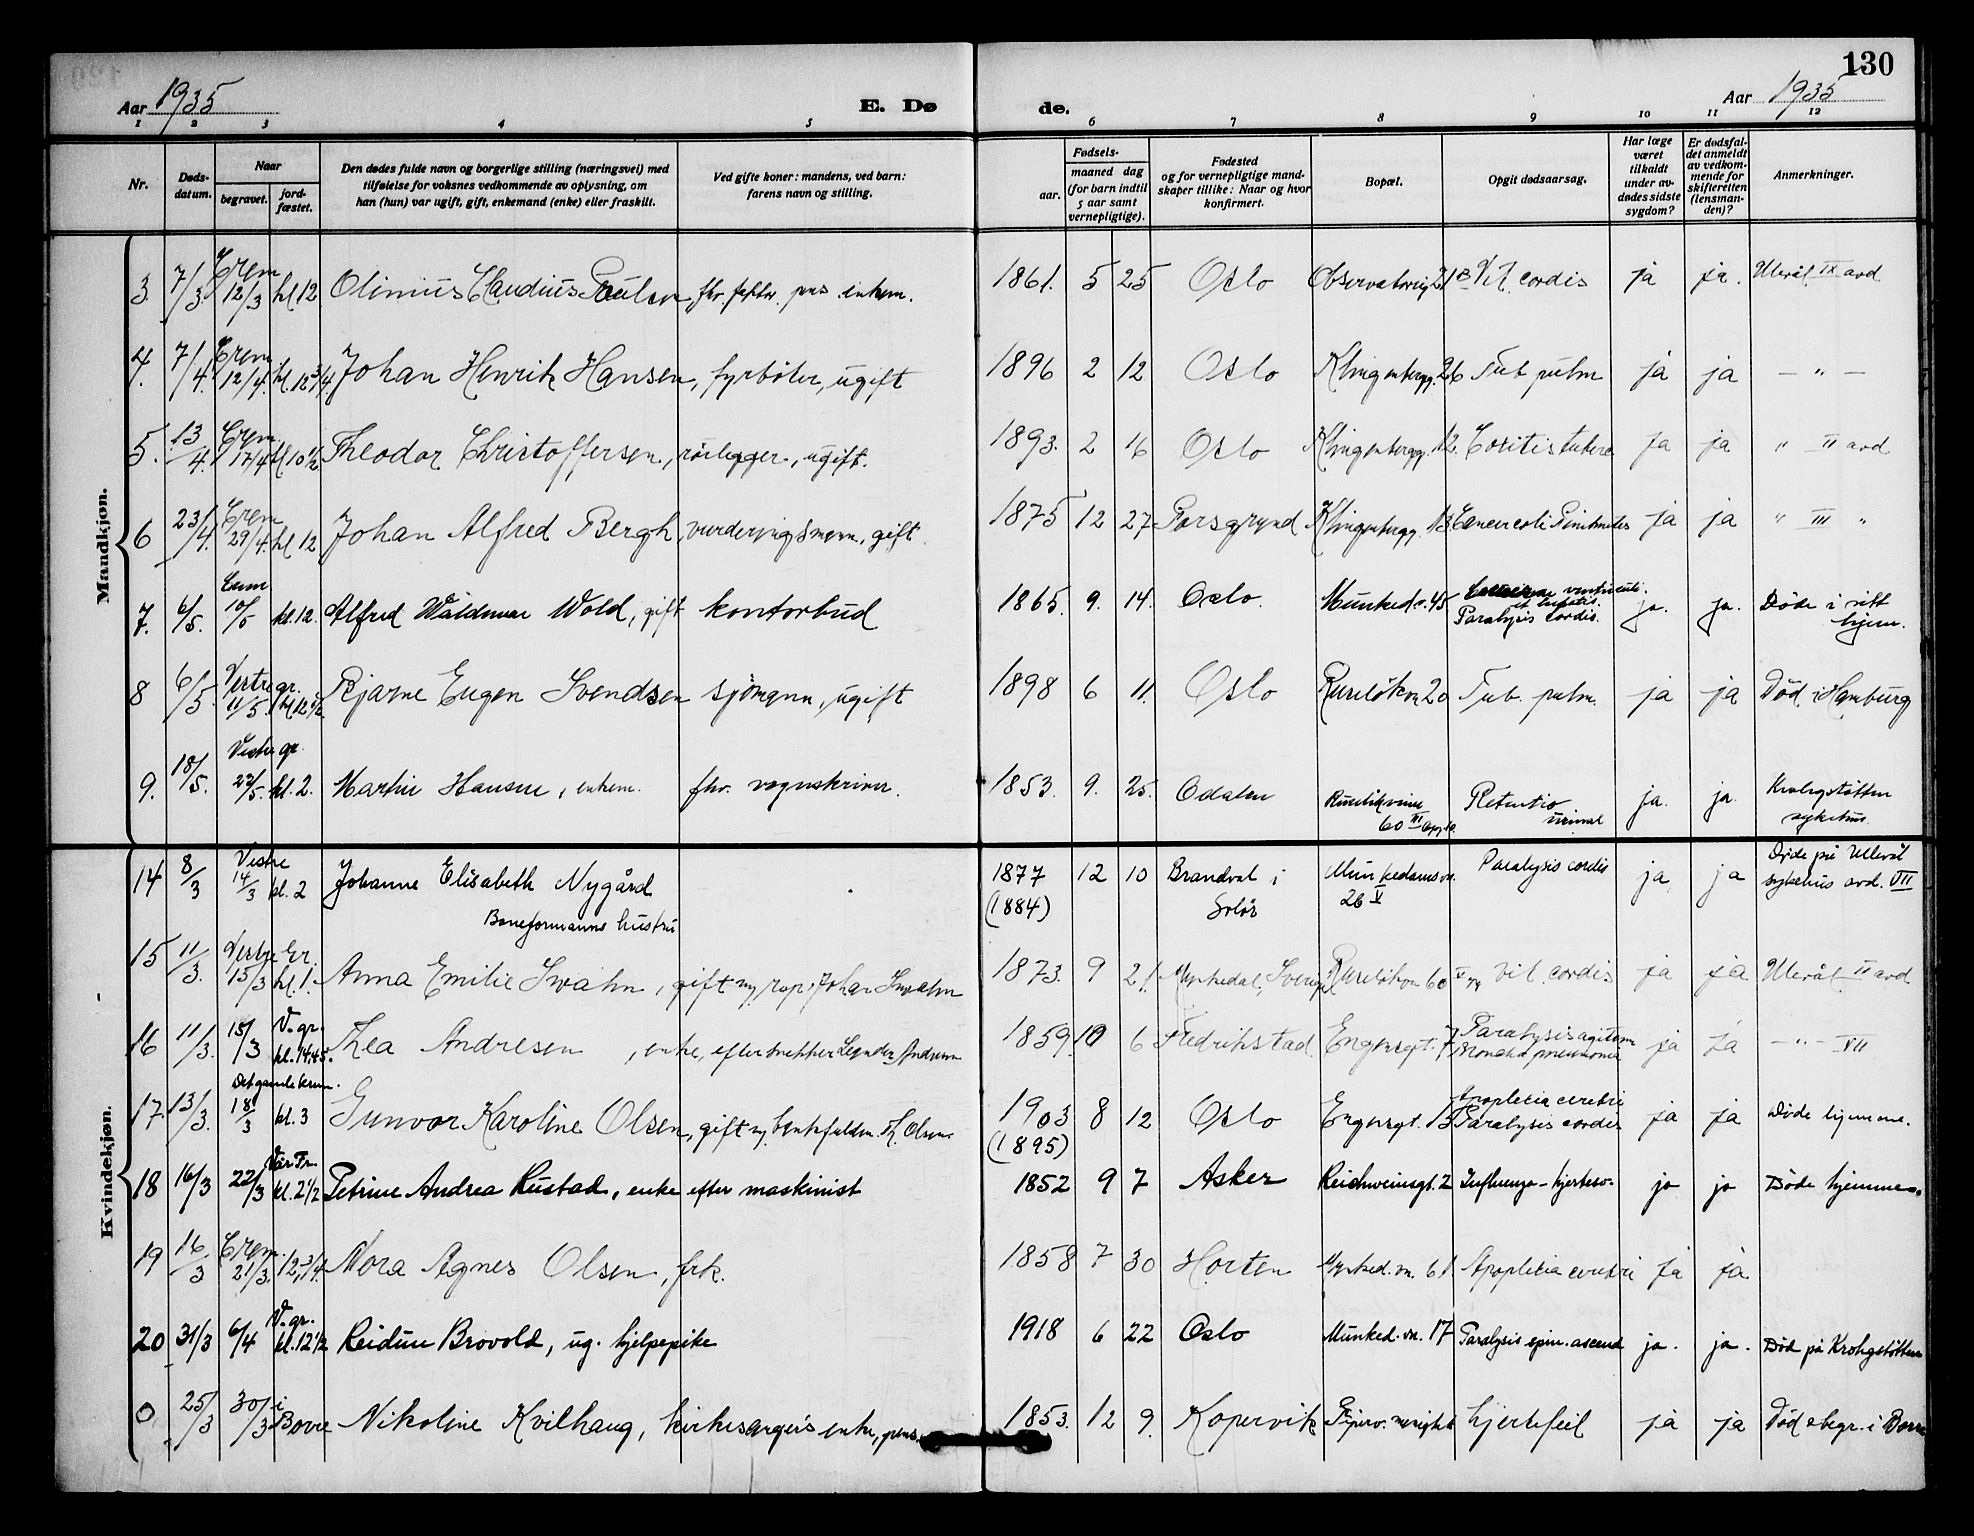 130
Aar 1935
E. Dø
de.
Aar 1935
1 2 3 4 5 6 7 8 9 10 11 12
Nr.
Døds-
datum.
Naar
begravet.
jord-
fæstet.
Den dødes fulde navn og borgerlige stilling (næringsvei) med
tilføielse for voksnes vedkommende av oplysning, om
han (hun) var ugift, gift, enkemand (enke) eller fraskilt.
Ved gifte koner: mandens, ved barn:
farens navn og stilling.
Fødsels-
aar.
maaned dag
(for barn indtil
5 aar samt
vernepligtige).
Fødested
og for vernepligtige mand-
skaper tillike: Naar og hvor
konfirmert.
Bopæl.
Opgit dødsaarsag.
Har læge
været
tilkaldt
under av-
dødes sidste
sygdom?
Er dødsfal-
det anmeldt
av vedkom-
mende for
skifteretten
(lensman-
den)?
Anmerkninger.
Mandkjøn.
3 7/3 Crem 12/3 kl 12 Olinius Claudius Paulsen fhv. pens. enkem. 1861. 5 25 Oslo Observatorieg 21 B Vit. cordis ja ja. Ulevål IX avd
4. 7/4. Crem. 12/4. kl. 12 3/4. Johan Henrik Hansen, fyrbøter, ugift 1896 2 12 Oslo Klingenbergg. 26 Tub. pulm ja ja — " —
5. 13/4. Crem 17/4 kl 10 1/2 Theodor Christoffersen, rörlegger, ugift. 1893. 2 16 Oslo Klingenbergg. 12. Coxitis tuberc ja ja " II avd
6 23/4. Crem 29/4. kl 12 Johan Alfred Bergh, vurderingsmann, gift. 1875 12 27 Porsgrund Klingenbergg. 13 Cancer coli ja ja " III "
7. 6/5. Crem 10/5 kl. 12. Alfred Waldemar Wold, gift kontorbud 1865. 9. 14. Oslo. Munked.v. 45 ventriculi
et hepatis.
Paralysis cordis. ja. ja. Døde i sitt
hjem.
8 6/5. Vestre gr. 11/5. kl 12 1/2 Bjarne Eugen Svendsen sjömann, ugift 1898 6 11. Oslo Ruselökvn 20 Tub. pulm. ja ja Död i Hamburg
9. 18/5. Vestre gr. 22/5. kl. 2. Martin Hansen, enkem. fhv. vognskriver. 1853. 9. 25. Odalen Ruseløkveien
60 III Retentio
urinae ja. ja. Krohgstøtten
sykehus.
Kvindekjøn.
14 8/3 Vestre 14/3 kl. 2 Johanne Elisabeth Nygård
Baneformanns hustru 1877
(1884) 12 10 Brandval i
Solör Munkedamsvn.
26 V Paralysis cordis ja ja Døde på Ullevål
sykehus avd. VII
15 11/3. Vestre Gr. 15/3 kl. 1. Anna Emilie Swahn, gift m. rep. Johan Swahn 1873. 9 21. Munkedal, Sverige Ruselökvn 60 V Vit. cordis ja ja Ulevål II avd
16 11/3. 15/3 V. gr. kl. 14.45. Thea Andresen, enke, efter snekker Andresen 1859. 10 6 Fredrikstad Engensgt. 7 Paralysis agitans
Broncho pneumonia ja ja — " — VII
17. 13/3. Det gamle krem. 18/3 kl. 3 Gunvor Karoline Olsen, gift m. Olsen 1903
(1895) 8 12 Oslo Engensgt. 13 Apoplexia cerebri
Paralysis cordis ja ja Døde hjemme.
18 16/3 22/3 Vår Fr. kl. 2 1/2 Petrine Andrea Rustad, enke efter maskinist 1852 9 7 Asker Reichweinsgt. 2 Influenza - hjertesv. ja ja Døde hjemme.
19 16/3 Crem. 21/3. 12,3/4. Nora Agnes Olsen, frk. 1858 7 30 Horten Munked. vn. 61 Apoplexia cerebri ja ja
20 31/3 6/4 V. gr. kl. 12 1/2 Reidun Brovold, ug. hjelpepike 1918 6 22 Oslo Munked. vn. 17 Paralysis spin. ascend ja. ja. Død på Krohgstøtten
0 25/3 30/3 i Borre Nikoline Kvilhaug, kirkesangers enke, pens. 1853. 12 9. Kopervik hjertefeil ja ja Död & begr. i Borre